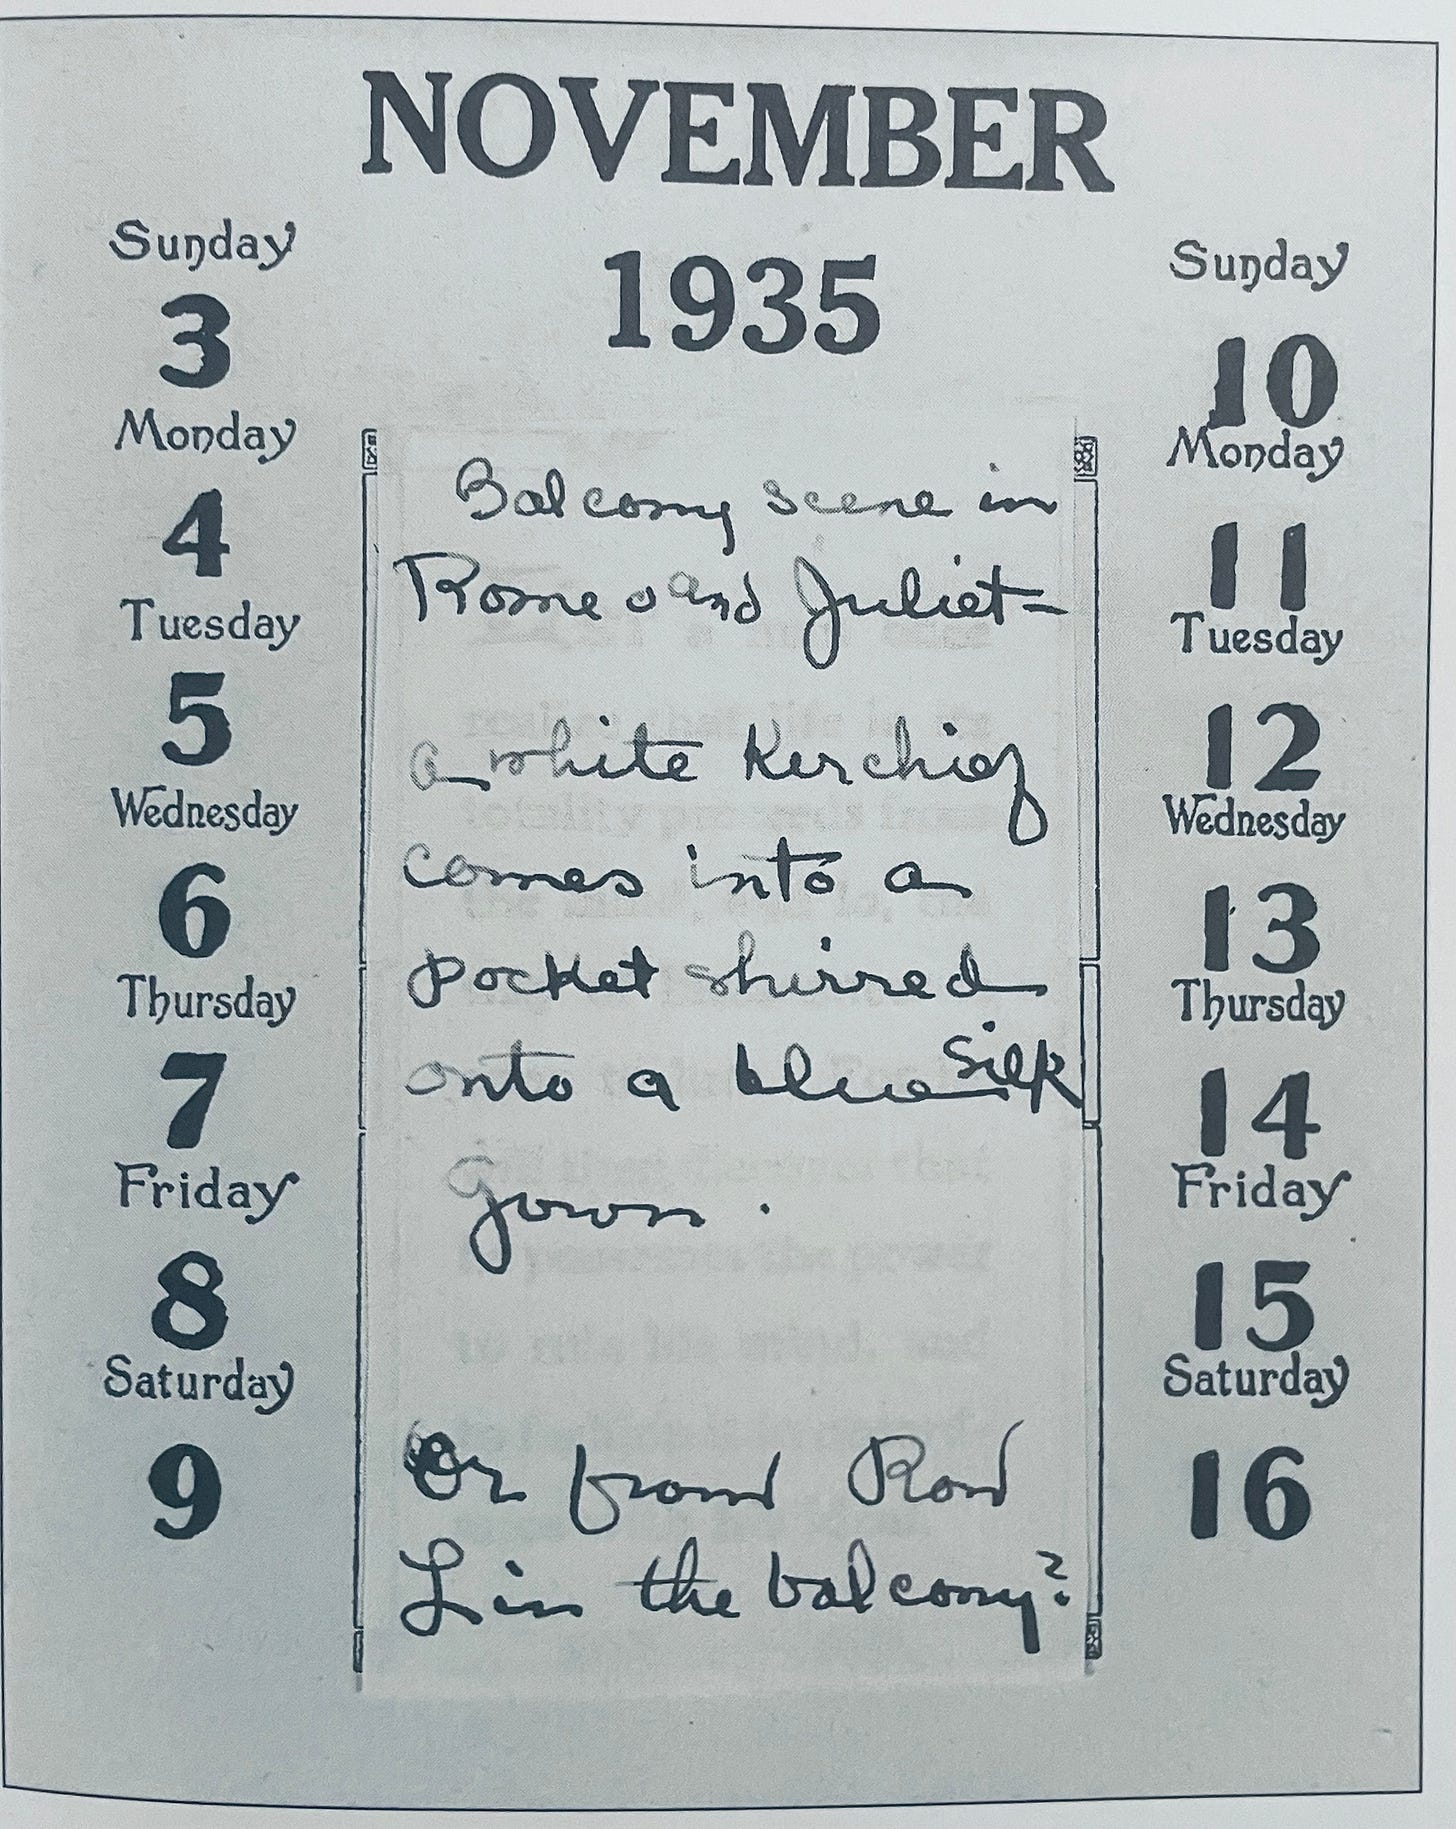 NOVEMBER
1935
Sunday
3
Monday
4
Tuesday
5
Wednesday
6
Thursday
7
Friday
8
Saturday
9
Balcony scene in
Romeo and Juliet-
a white Kerchief
comes into a
pocket shirred
onto a blue Silk
Gown.
Or from Row
L in the balcony?
Sunday
10
Monday
11
Tuesday
12
Wednesday
13
Thursday
14
Friday
15
Saturday
16